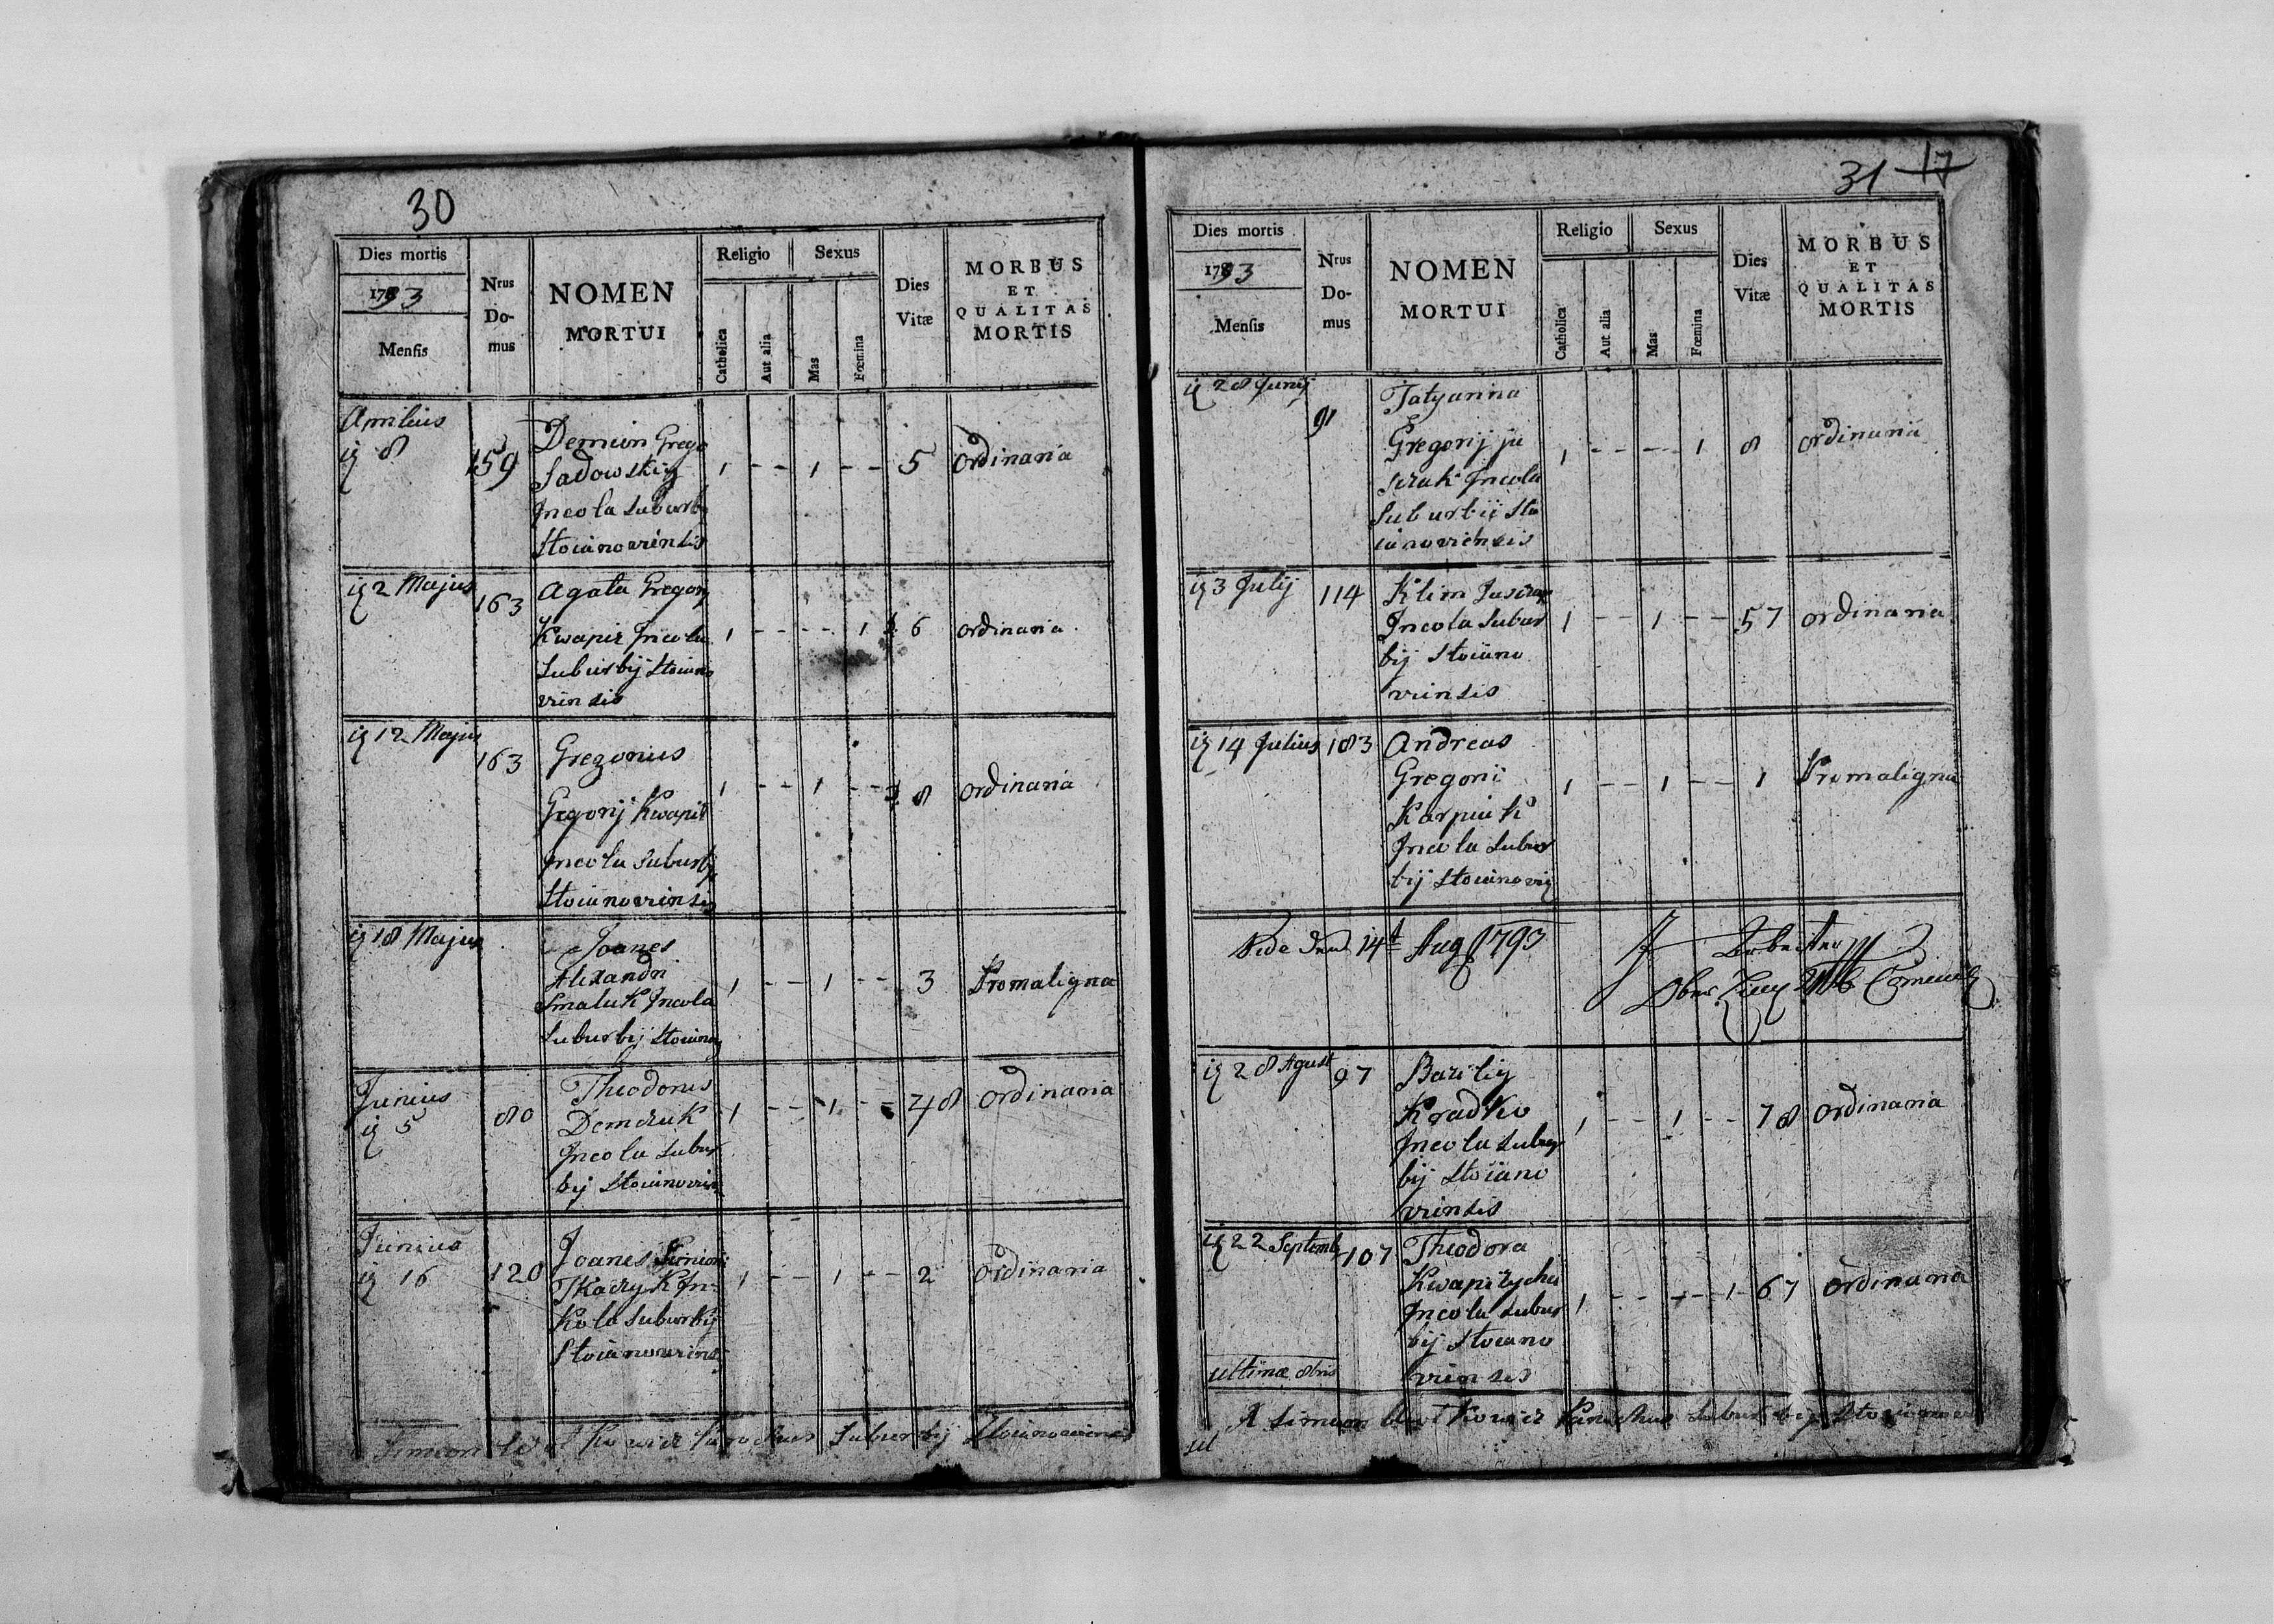 30
Dies mortis
1793
Mensis
Nrus Do-mus
NOMEN
MORTUI
Religio
Catholica
Aut alia
Sexus
Mas
Fœmina
Dies Vitæ
MORBUS
ET
QUALITAS
MORTIS
Aprilius
8
159
Demian Grego
Sadowskiy
Incola Suburb
Stoianoviensis
1 - - 1 - - 5 ordinaria
2 Majus
163
Agata Gregorij
Kwapisz Incola
Suburbij Stoiano
viensis
1 - - - - 1 6 ordinaria
12 Majus
163
Gregorius
Gregorij Kwapisz
Incola Suburbij
Stoianoviensis
1 - - 1 - - 8 ordinaria
18 Majus
Joanes
Alexandri
Smaluk Incola
Suburbij Stoianov
1 - - 1 - - 3 Pro maligna
Junius
5
80
Theodorus
Demczuk
Incola Subur
bij Stoianovien
1 - - 1 - - 48 ordinaria
Junius
16
120
Joanes Simioni
Tkaczyk In
Kola Suburbij
Stoianoviens
1 - - 1 - - 2 ordinaria
Simeon Parochus Suburbij Stoianoviensis
31 17
Dies mortis
1793
Mensis
Nrus Do-mus
NOMEN
MORTUI
Religio
Catholica
Aut alia
Sexus
Mas
Fœmina
Dies Vitæ
MORBUS
ET
QUALITAS
MORTIS
28 Junij
91
Tatyanna
Gregorij ju
szczak Incola
Suburbij Sto
ianoviensis
1 - - - - 1 8 ordinaria
3 Julij
114
Klim
Incola Subur
bij Stoiano
viensis
1 - - 1 - - 57 ordinaria
14 Julius
183
Andreas
Gregorii
Karpiuk
Incola Subur
bij Stoianovij
1 - - 1 - - 1 Pro maligna
14t Aug 1793
28 Agust
97
Baziliy
Kradko
Incola Subur
bij Stoiano
viensis
1 - - 1 - - 78 ordinaria
22 Septemb
107
Theodora
Kwapiszycha
Incola Subur
bij Stoiano
viensis
1 - - - - 1 67 ordinaria
ultima 8bris
Simeon Parochus Suburbij